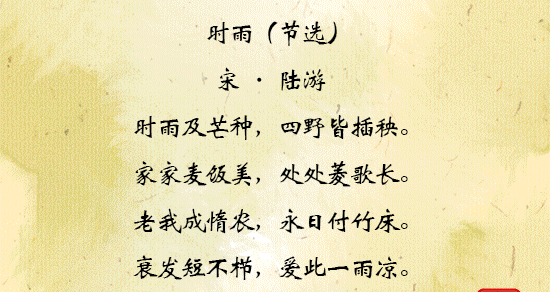 时雨（节选）
宋 · 陆游
时雨及芒种，四野皆插秧。
家家麦饭美，处处菱歌长。
老我成惰农，永日付竹床。
衰发短不栉，爱此一雨凉。